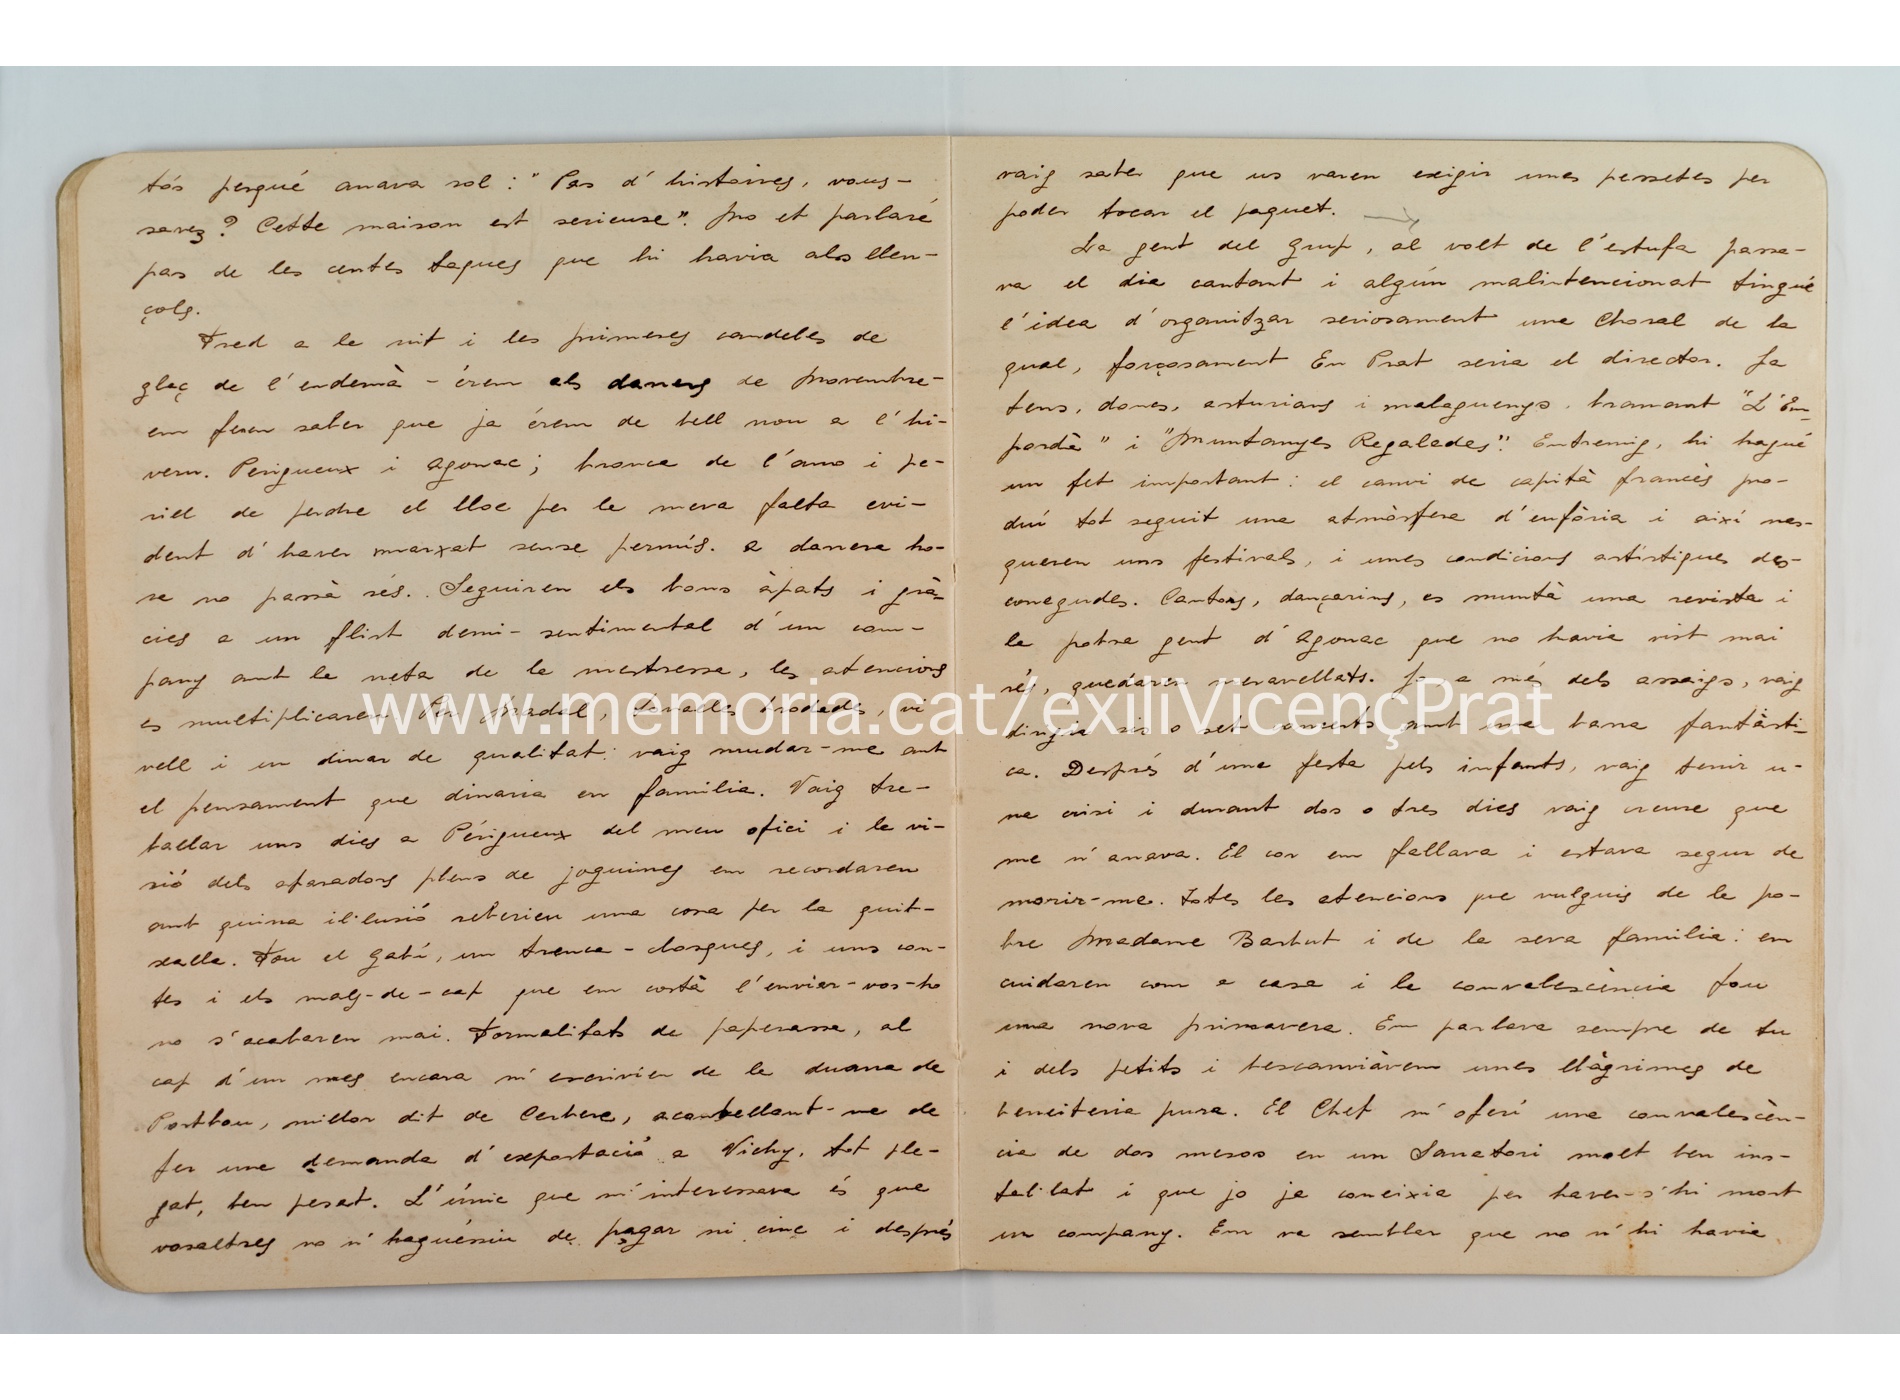 tós perqué anava sol: "Pas d'histoires, vous-
savez? Cette maison est serieuse". No et parlaré
pas de les centes taques que hi havia als llen-
çols.
Fred a la nit i les primeres candeles de
glaç de l'endemà - érem als darrers de Novembre-
em feren saber que ja érem de bell nou a l'hi-
vern. Perigueux i Agonac; bronca de l'amo i pe-
rill de perdre el lloc per la meva falta evi-
dent d'haver marxat sense permís. A darrera ho-
ra no passà rés. Seguiren els bons àpats i grà-
cies a un flirt demi-sentimental d'un com-
pany amb la neta de la mestressa, les atencions
es multiplicaren. Per Nadal, tovalles brodades, vi
vell i un dinar de qualitat: vaig mudar-me amb
el pensament que dinaria en familia. Vaig tre-
ballar uns dies a Périgueux del meu ofici i la vi-
sió dels aparadors plens de joguines em recordaren
amb quina il·lusió rebrieu una cosa per la quit-
xalla. Fou el gabí, un trenca-closques, i uns con-
tes i els mals-de-cap que em costà l'enviar-vos-ho
no s'acabaren mai. Formalitats de paperassa, al
cap d'un mes encara m'escrivien de la duana de
Portbou, millor dit de Cerbere, aconsellant-me de
fer una demanda d'exportació a Vichy. Tot ple-
gat, ben pesat. L'únic que m'interessava és que
vosaltres no n'haguéssiu de pagar ni cinc i després
vaig saber que us varen exigir unes pessetes per
poder tocar el paquet.
La gent del grup, al volt de l'estufa passa-
va el dia cantant i algún malintencionat tingué
l'idea d'organitzar seriosament una Choral de la
qual, forçosament En Prat seria el director. Ja
tens, doncs, asturians i malaguenys bramant "L'Em-
pordà" i "Muntanyes Regalades". Entremig, hi hagué
un fet important: el canvi de capità francès pro-
duí tot seguit una atmòsfera d'eufòria i així nas-
queren uns festivals, i unes condicions artístiques des-
conegudes. Cantors, dançarins, es muntà una revista i
la pobra gent d'Agonac que no havia vist mai
rés, quedaren meravellats. Jo a més dels assaigs, vaig
dirigir sis o set concerts amb una barra fantàsti-
ca. Després d'una festa pels infants, vaig tenir u-
na crisi i durant dos o tres dies vaig creure que
me n'anava. El cor em fallava i estava segur de
morir-me. Totes les atencions que vulguis de la po-
bre Madame Barbut i de la seva familia: em
cuidaren com a casa i la convalescència fou
una nova primavera. Em parlava sempre de tu
i dels petits i bescanviàvem unes llàgrimes de
beneiteria pura. El Chef m'oferí una convalescèn-
cia de dos mesos en un Sanatori molt ben ins-
tal·lat i que jo ja coneixia per haver-s'hi mort
un company. Em va semblar que no n'hi havia
www.memoria.cat/exiliVicençPrat